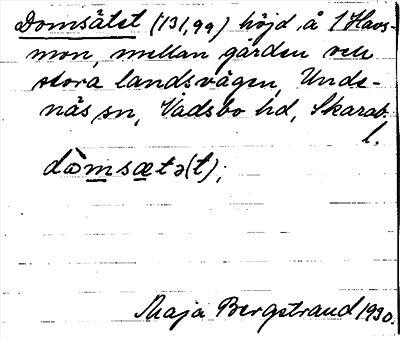 Domsätet (131,99) höjd å 1 Havs-
mon, mellan gården och
stora landsvägen, Unde-
näs sn, Vadsbo hd, Skarab.
l.
dòmsætə(t);
Maja Bergstrand 1930.